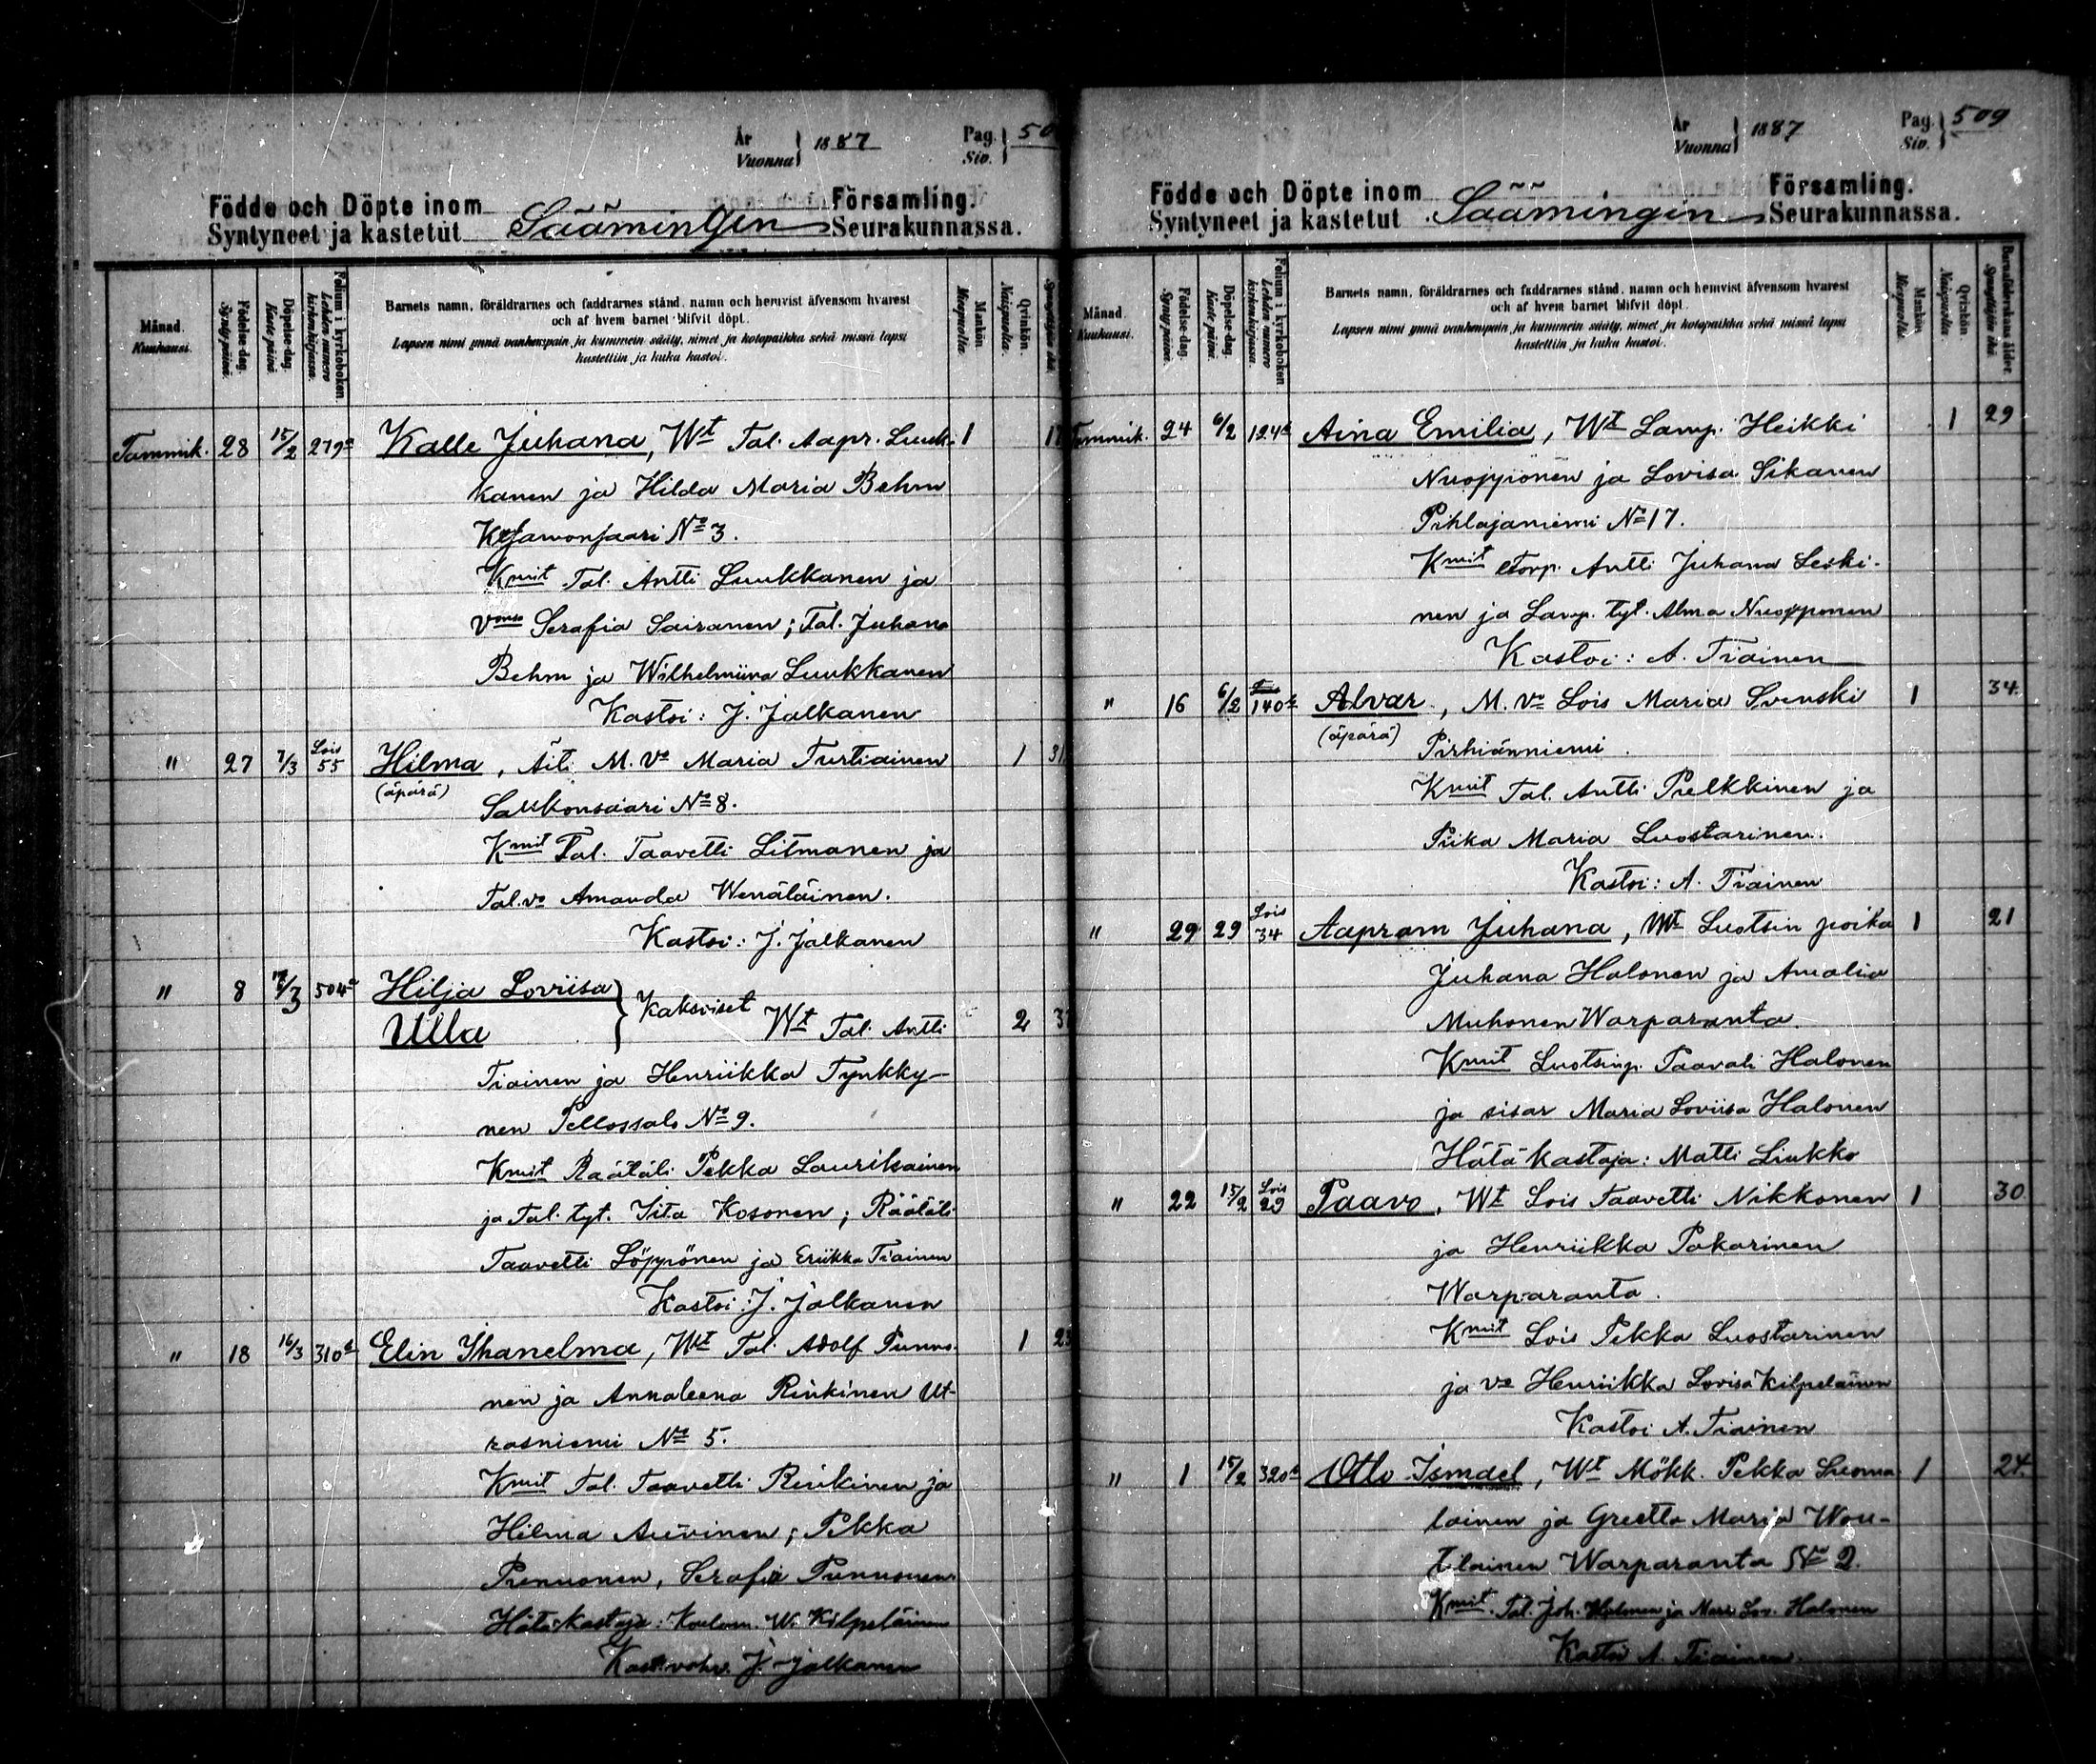 År
Vuonna
1887
Pag.
Siv.
50
Födde och Döpte inom
Syntyneet ja kastetut
Säämingin
Församling.
Seurakunnassa.
Månad.
Kuukausi.
Födelse dag.
Synty-päivä.
Döpelse dag.
Kaste päivä.
Folium i kyrkoboken.
Lehden numero kirkonkirjassa.
Barnets namn, föräldrarnes och faddrarnes stånd, namn och hemvist äfvensom hvarest
och af hvem barnet blifvit döpt.
Lapsen nimi ynnä vanhempain ja kummein sääty, nimet ja kotopaikka sekä missä lapsi
kastettiin ja kuka kastoi.
Mankön
Miespuolta.
Qvinkön.
Naispuolta.
Tammik. 28 15/2 279a Kalle Juhana, Wt Tal. Aapr. Luuk- 1
kanen ja Hilda Maria Behm
No 3.
Kmit Tal. Antti Luukkanen ja
Vmsa Serafia Sairanen; Tal. Juhana
Behm ja Wilhelmiina Luukkanen
Kastoi: J. Jalkanen
" 27 7/3 Lois 55 Hilma, Äiti M. Vo Maria Turtiainen 1 31
(äpärä)
Saukonsaari No 8.
Kmit Tal. Taavetti Litmanen ja
Tal. vo Amanda Wenäläinen.
Kastoi: J. Jalkanen
" 8 /3 504a Hilja Loviisa
Ulla
Kaksoiset Wt Tal. Antti 2 3
Tiainen ja Henriikka Tynkky-
nen Pellossalo No 9.
Kmit Räätäli Pekka Laurikainen
ja Tal. tyt. Iita Kosonen; Räätäli
Taavetti Löppönen ja Eriikka Tiainen
Kastoi: J. Jalkanen
" 18 16/3 310 Elin Ihanelma, Wt Tal. Adolf Punno- 1 2
nen ja Annaleena Rinkinen Ut-
rasniemi No 5.
Kmit Tal. Taavetti Rinkinen ja
Hilma Auvinen; Pekka
Punnonen, Serafia Punnonen
Hätä-Kastaja: W. Kilpeläinen
J. Jalkanen
År
Vuonna
1887
Pag.
Siv.
509
Födde och Döpte inom
Syntyneet ja kastetut
Säämingin
Församling.
Seurakunnassa.
Månad.
Kuukausi.
Födelse dag.
Synty-päivä.
Döpelse dag.
Kaste päivä.
Folium i kyrkoboken.
Lehden numero kirkonkirjassa.
Barnets namn, föräldrarnes och faddrarnes stånd, namn och hemvist äfvensom hvarest
och af hvem barnet blifvit döpt.
Lapsen nimi ynnä vanhempain ja kummein sääty, nimet ja kotopaikka sekä missä lapsi
kastettiin ja kuka kastoi.
Mankön
Miespuolta.
Qvinkön.
Naispuolta.
Barnaföderskans ålder.
Synnyttäjän ikä.
Tammik. 24 6/2 124a Aina Emilia, Wt Lamp. Heikki 1 29
Nuopponen ja Lovisa Sikanen
Pihlajaniemi No 17.
Kmit Torp. Antti Juhana Leski-
nen ja Lamp. tyt. Alma Nuopponen
Kastoi: A. Tiainen
" 16 6/2 140 Alvar, M. Vo Lois Maria Svenski 1 34
(äpärä)
Pirhiänniemi.
Kmit Tal. Antti Pelkkinen ja
Piika Maria Luostarinen.
Kastoi: A. Tiainen
" 29 29 Lois 34 Aapram Juhana, Wt Luotsin poika 1 21
Juhana Halonen ja Amalia
Muhonen Warparanta.
Kmit Luotsinp. Paavali Halonen
ja sisar Maria Loviisa Halonen
Hätä-kastaja: Matti Liukko
" 22 15/2 Lois 29 Paavo, Wt Lois Taavetti Nikkonen 1 30
ja Henriikka Pakarinen
Warparanta.
Kmit Lois Pekka Luostarinen
ja vo Henriikka Lovisa Kilpeläinen
Kastoi A. Tiainen
" 1 15/2 320 Otto Ismael, Wt Mökk. Pekka Suoma- 1 24
lainen ja Greetta Maria Wou-
tilainen Warparanta No 2.
Kmit. Tal. Joh. Halonen ja Mar. Lov. Halonen
Kastoi A. Tiainen.